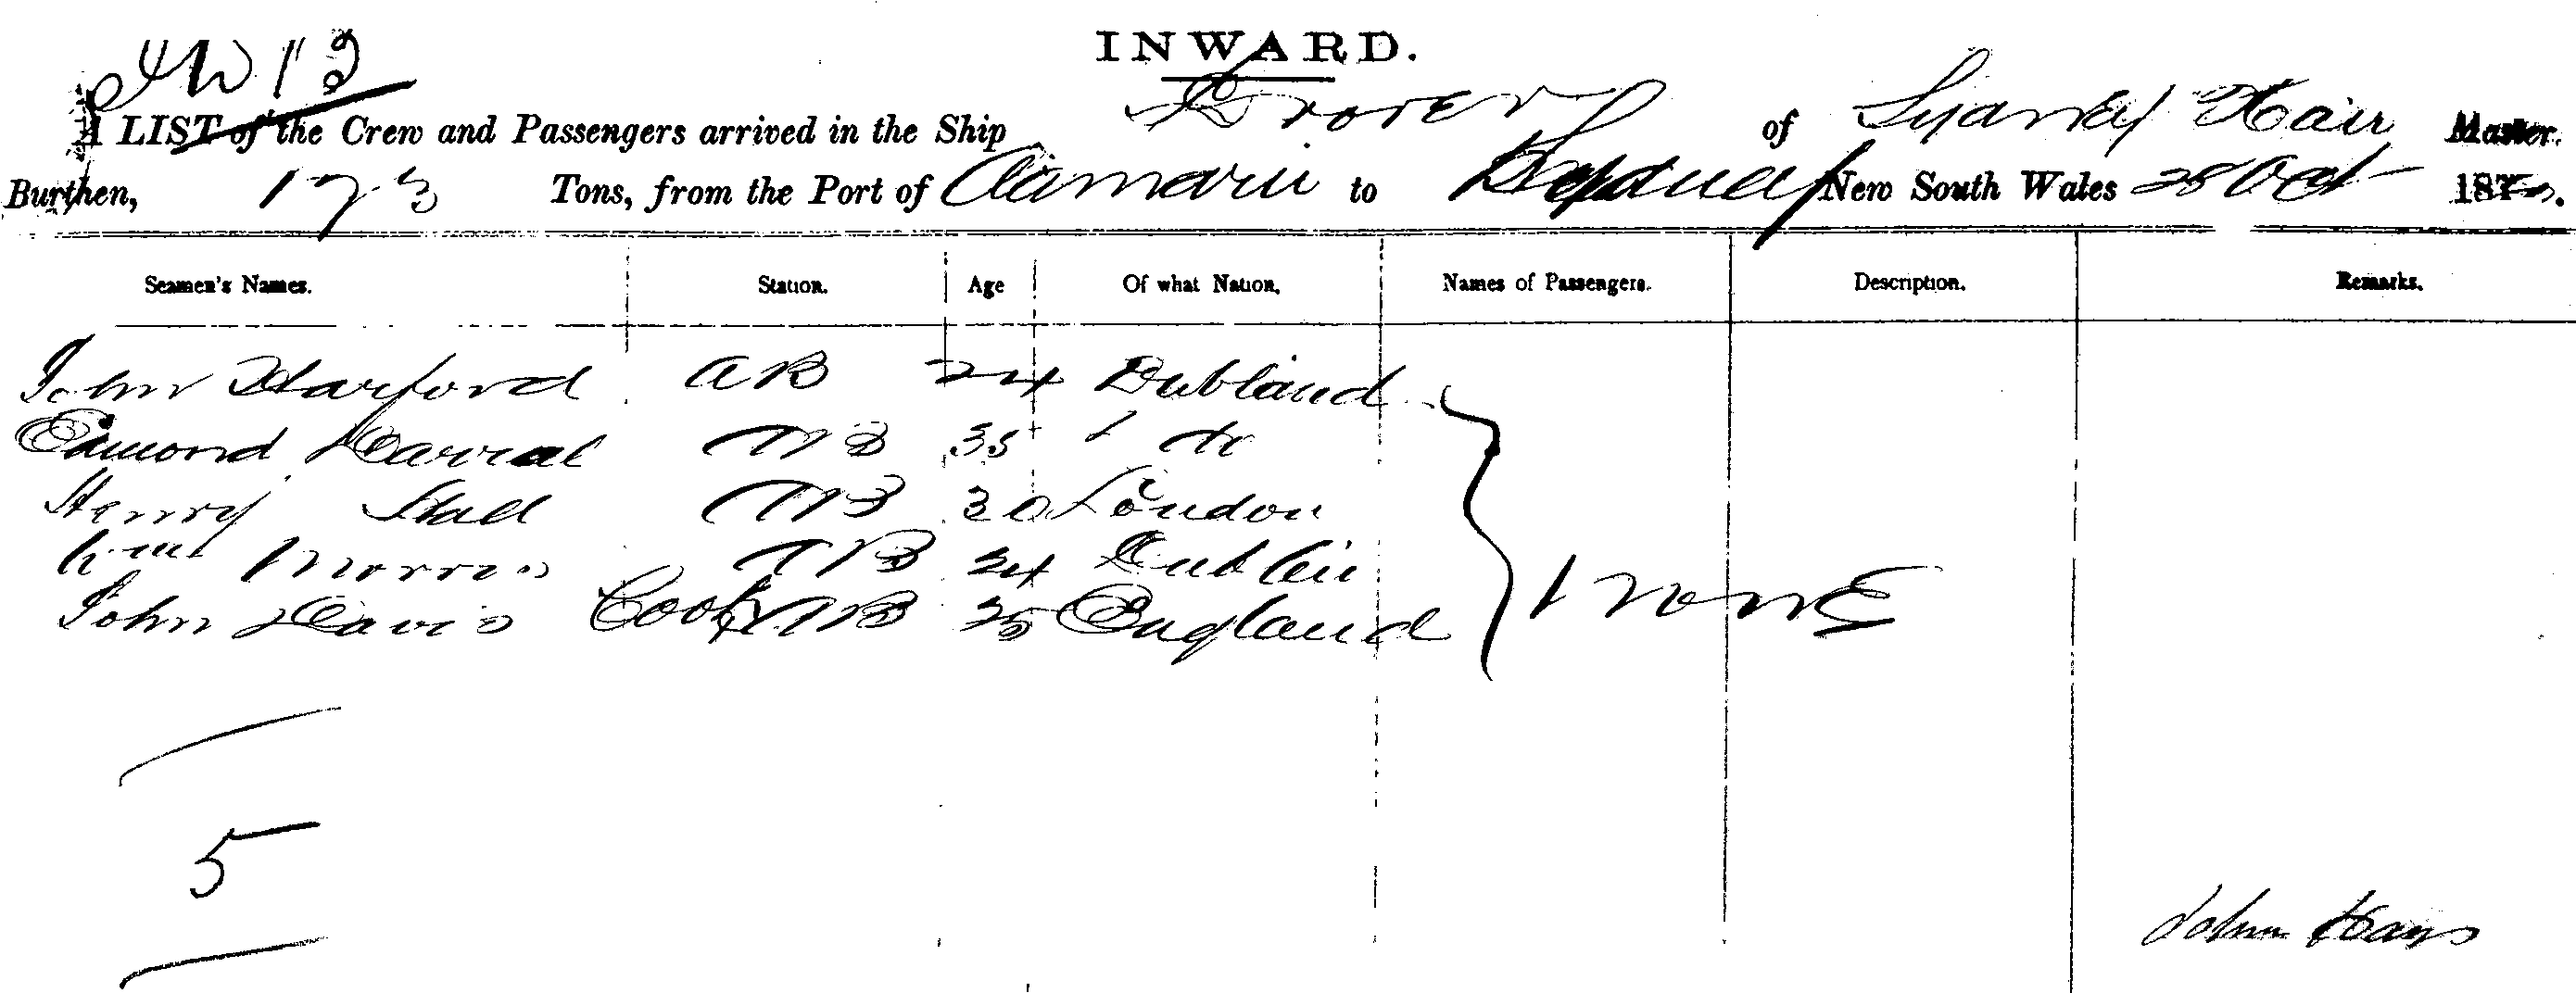 INWARD.
A LIST of the Crew and Passengers arrived in the Ship Prover of Sydney Master.
Burthen, 173 Tons, from the Port of Oamaru to Sydney New South Wales 28 Oct 187
Seamen's Names. Station. Age Of what Nation. Names of Passengers. Description. Remarks.
John Harford AB 24 Dubland
Edmond AB 35 do
Henry AB 30 London
Wm Morris AB 24 Dublin
John Davis Cook AB 25 England
None
5
John Hays